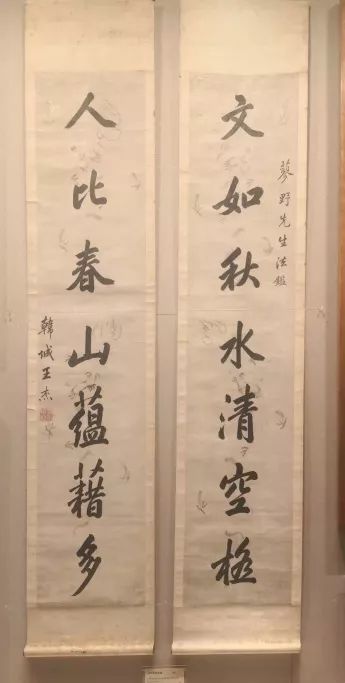 蓼野先生法鑑
文如秋水清空極
人比春山蘊藉多
韓城王杰